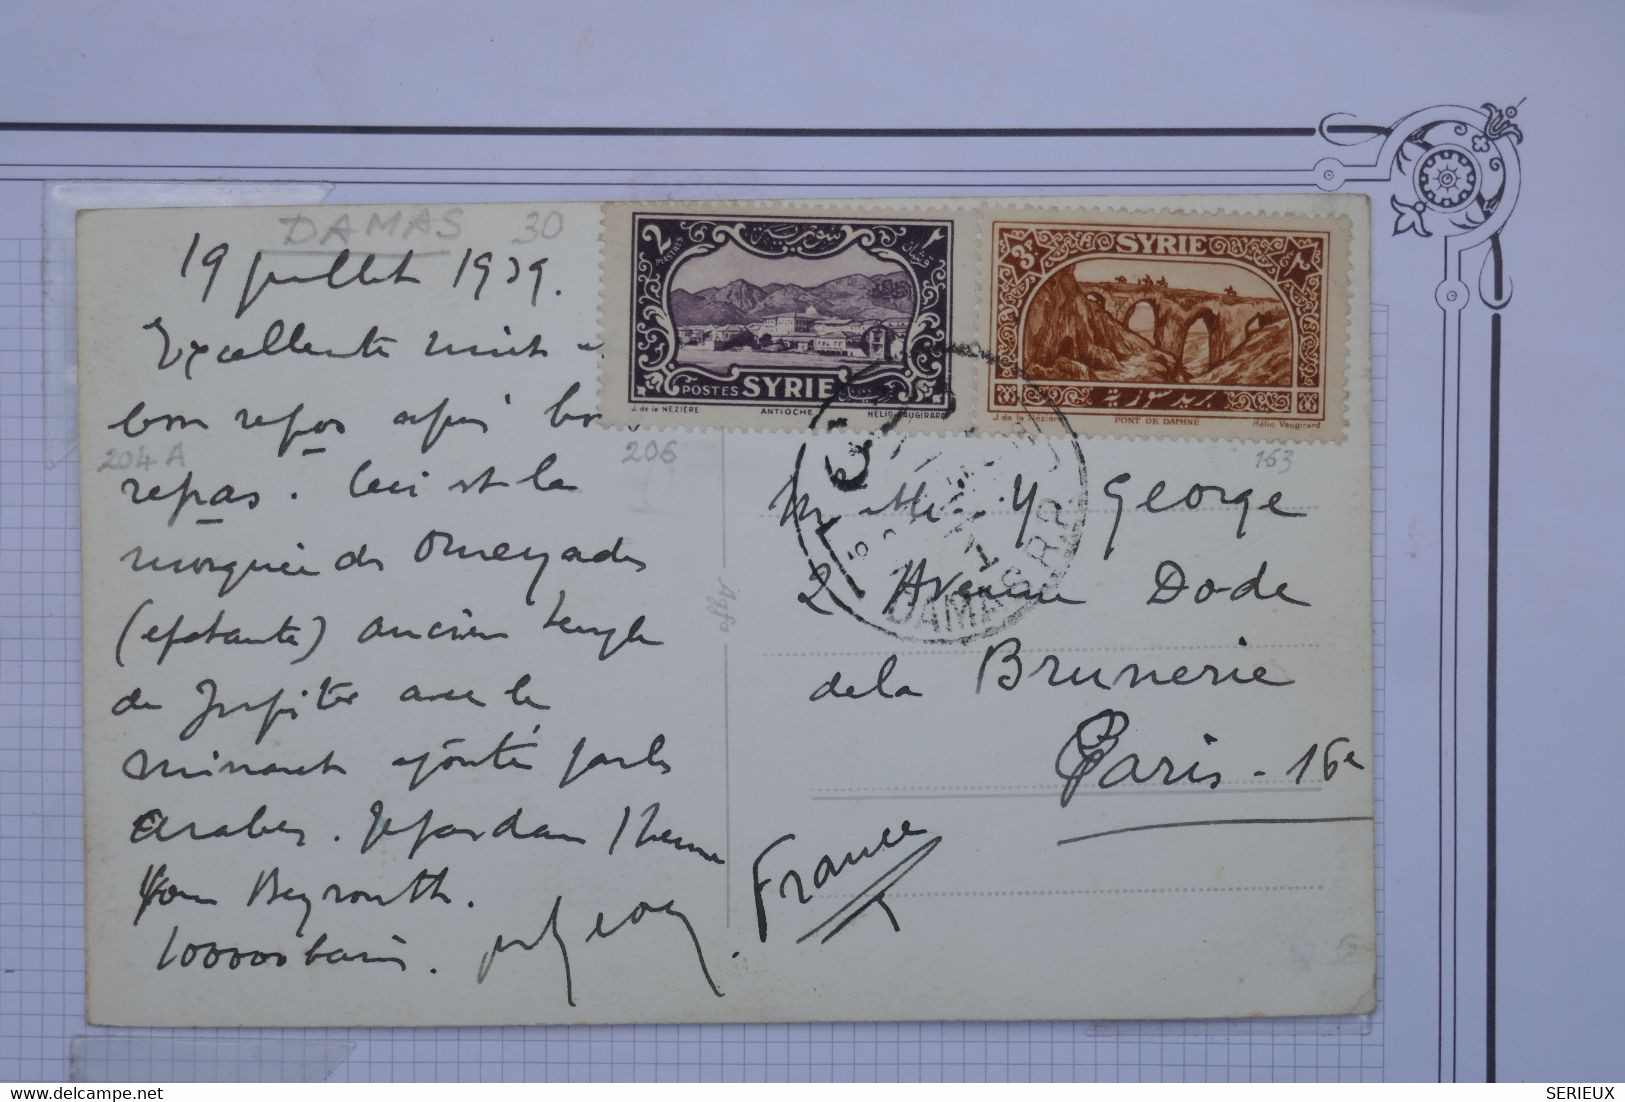 DAMAS 30
19 juillet 1939.
Excellente nuit
bon repos après bon
204 A 206 163
repas. Ceci est la
mosquée des Omeyades
(épatante) ancien temple
de Jupiter avec le
minaret ajouté par les
Arabes. Je pars dans 1 heure
pour Beyrouth.
100000 baisers.
2 PIASTRES
POSTES SYRIE
J. de la NÉZIÈRE ANTIOCHE HELIO VAUGIRARD
3P SYRIE
بريد سورية
J. de la Nézière PONT DE DAPHNÉ Hélio Vaugirard
DAMAS R.P.
Agfa
M. et Mme Y George
2 Avenue Dode
de la Brunerie
Paris - 16e
France
SERIEUX